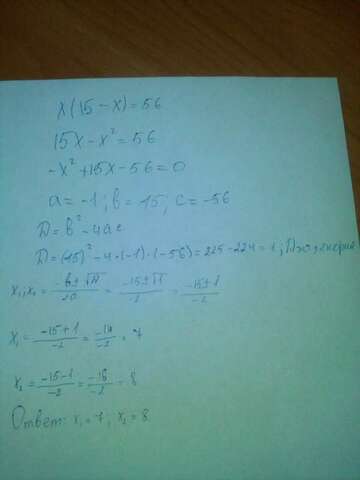 x(15-x)=56
15x-x²=56
-x²+15x-56=0
a=-1; b=15; c=-56
D=b²-4ac
D=(15)²-4·(-1)·(-56)=225-224=1;
x₁;x₂=(-b±√D)/2a=(-15±√1)/-2=(-15±1)/-2
x₁=(-15+1)/-2=-14/-2=7
x₂=(-15-1)/-2=-16/-2=8
Ответ: x₁=7; x₂=8